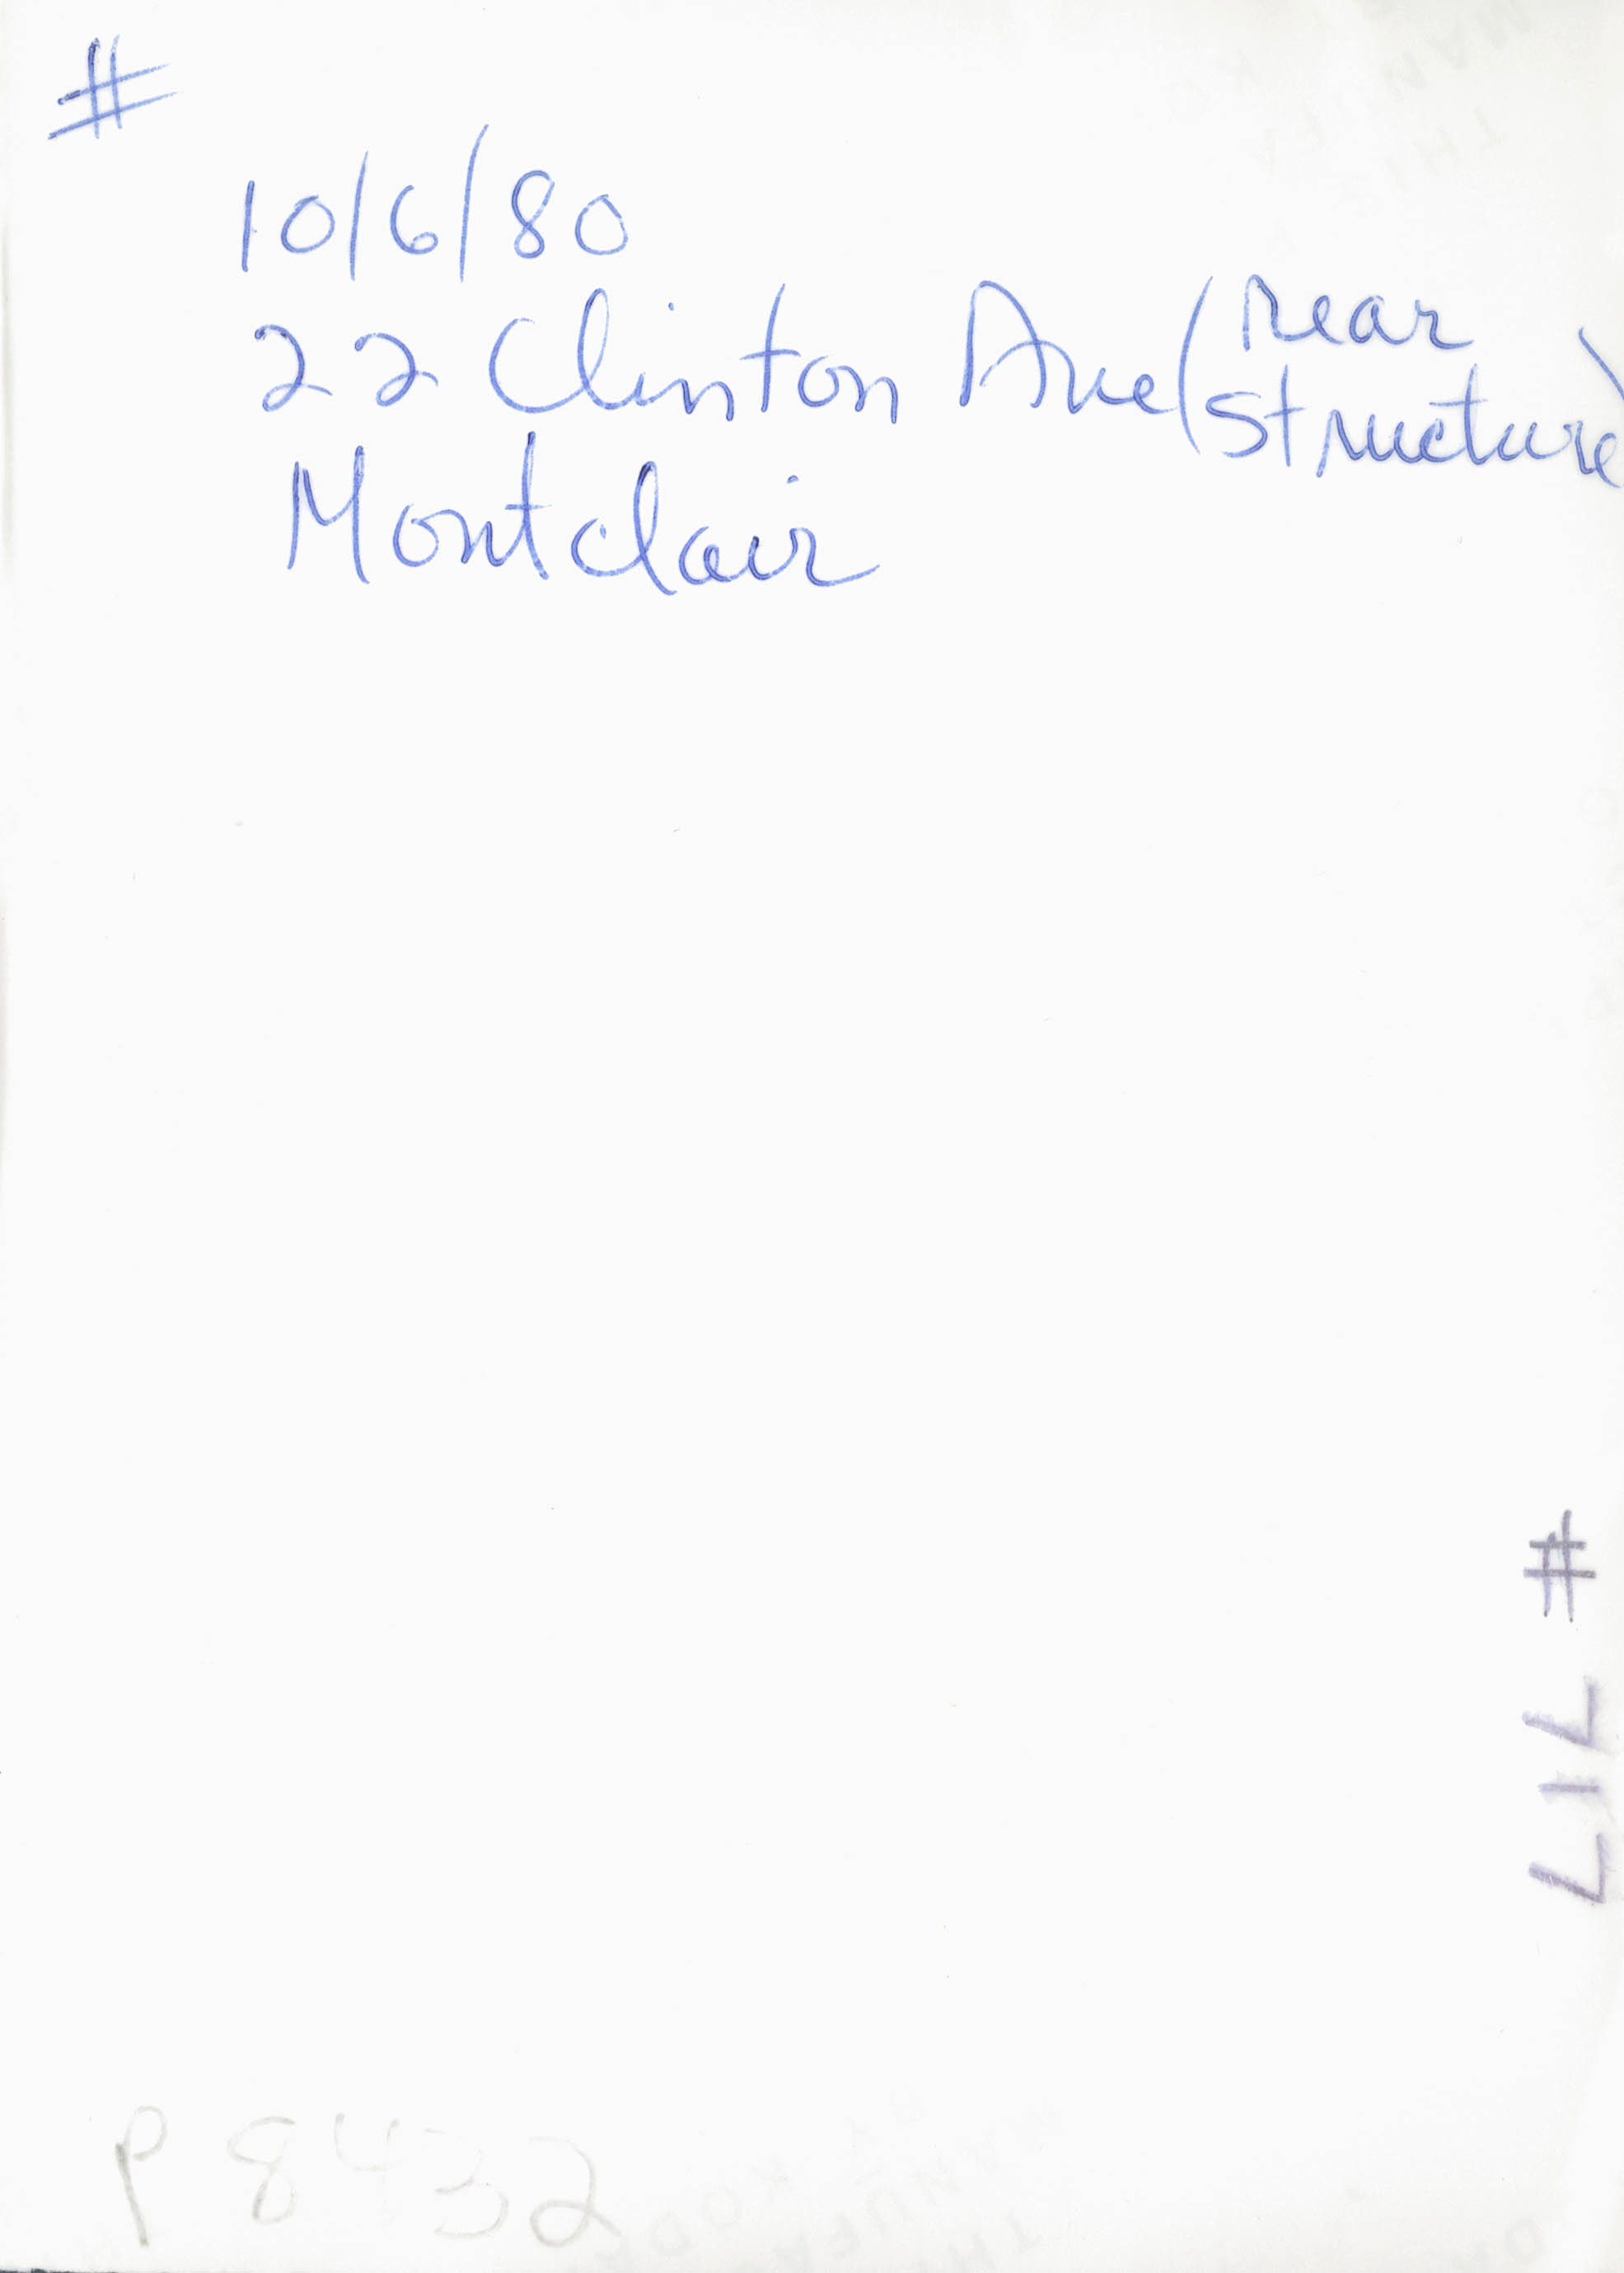 #
10/6/80
22 Clinton Ave (rear structure)
Montclair
# 717
P 8432